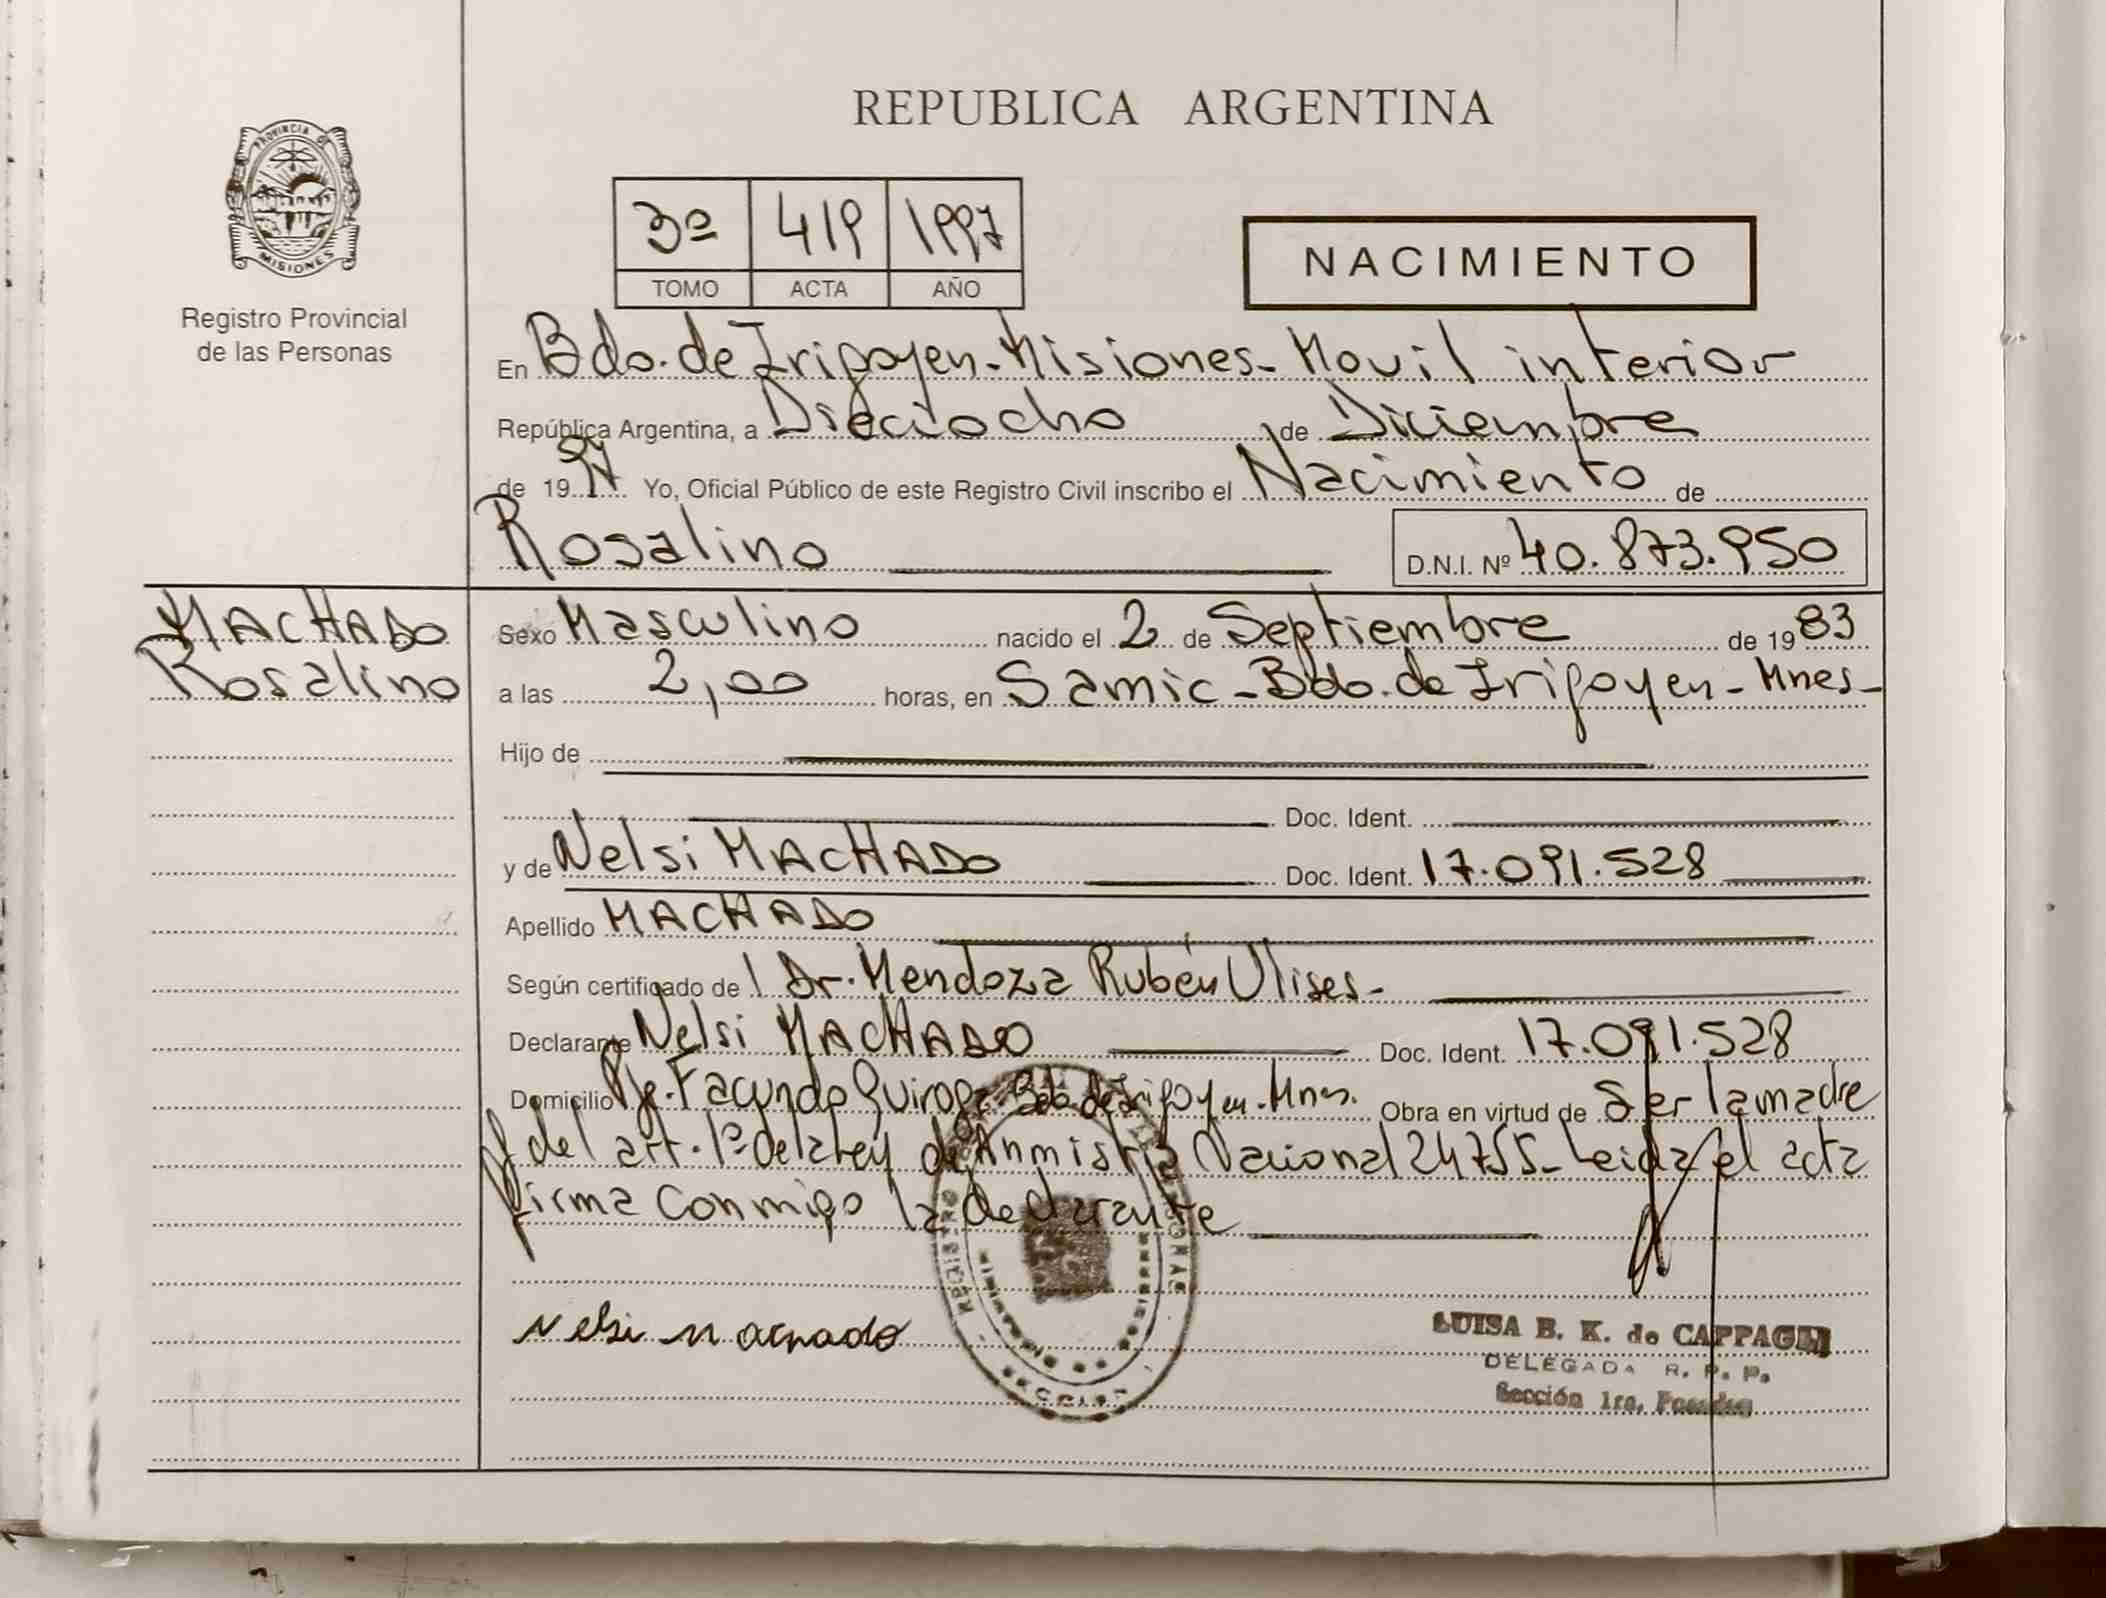 REPUBLICA ARGENTINA
PROVINCIA DE
MISIONES
Registro Provincial
de las Personas
3º 419 1997
TOMO ACTA AÑO
NACIMIENTO
En Bdo. de Irigoyen - Misiones - Movil interior
República Argentina, a Dieciocho de Diciembre
de 1997 Yo, Oficial Público de este Registro Civil inscribo el Nacimiento de
Rosalino D.N.I. Nº 40.873.950
MACHADO
Rosalino
Sexo Masculino nacido el 2 de Septiembre de 1983
a las 2,00 horas, en Samic - Bdo. de Irigoyen - Mnes -
Hijo de
Doc. Ident.
y de Nelsi MACHADO Doc. Ident. 17.091.528
Apellido MACHADO
Según certificado de l Dr. Mendoza Rubén Ulises -
Declarante Nelsi MACHADO Doc. Ident. 17.091.528
Domicilio Pje. Facundo Quiroga - Bdo. de Irigoyen - Mnes. Obra en virtud de Ser la madre
y del art. 1º de la Ley de Anmistia Nacional 24755 - Leida el acta
firma conmigo la declarante
Nelsi Machado
LUISA B. K. de CAPPAGLI
DELEGADA R. P. P.
Sección 1ra. Posadas